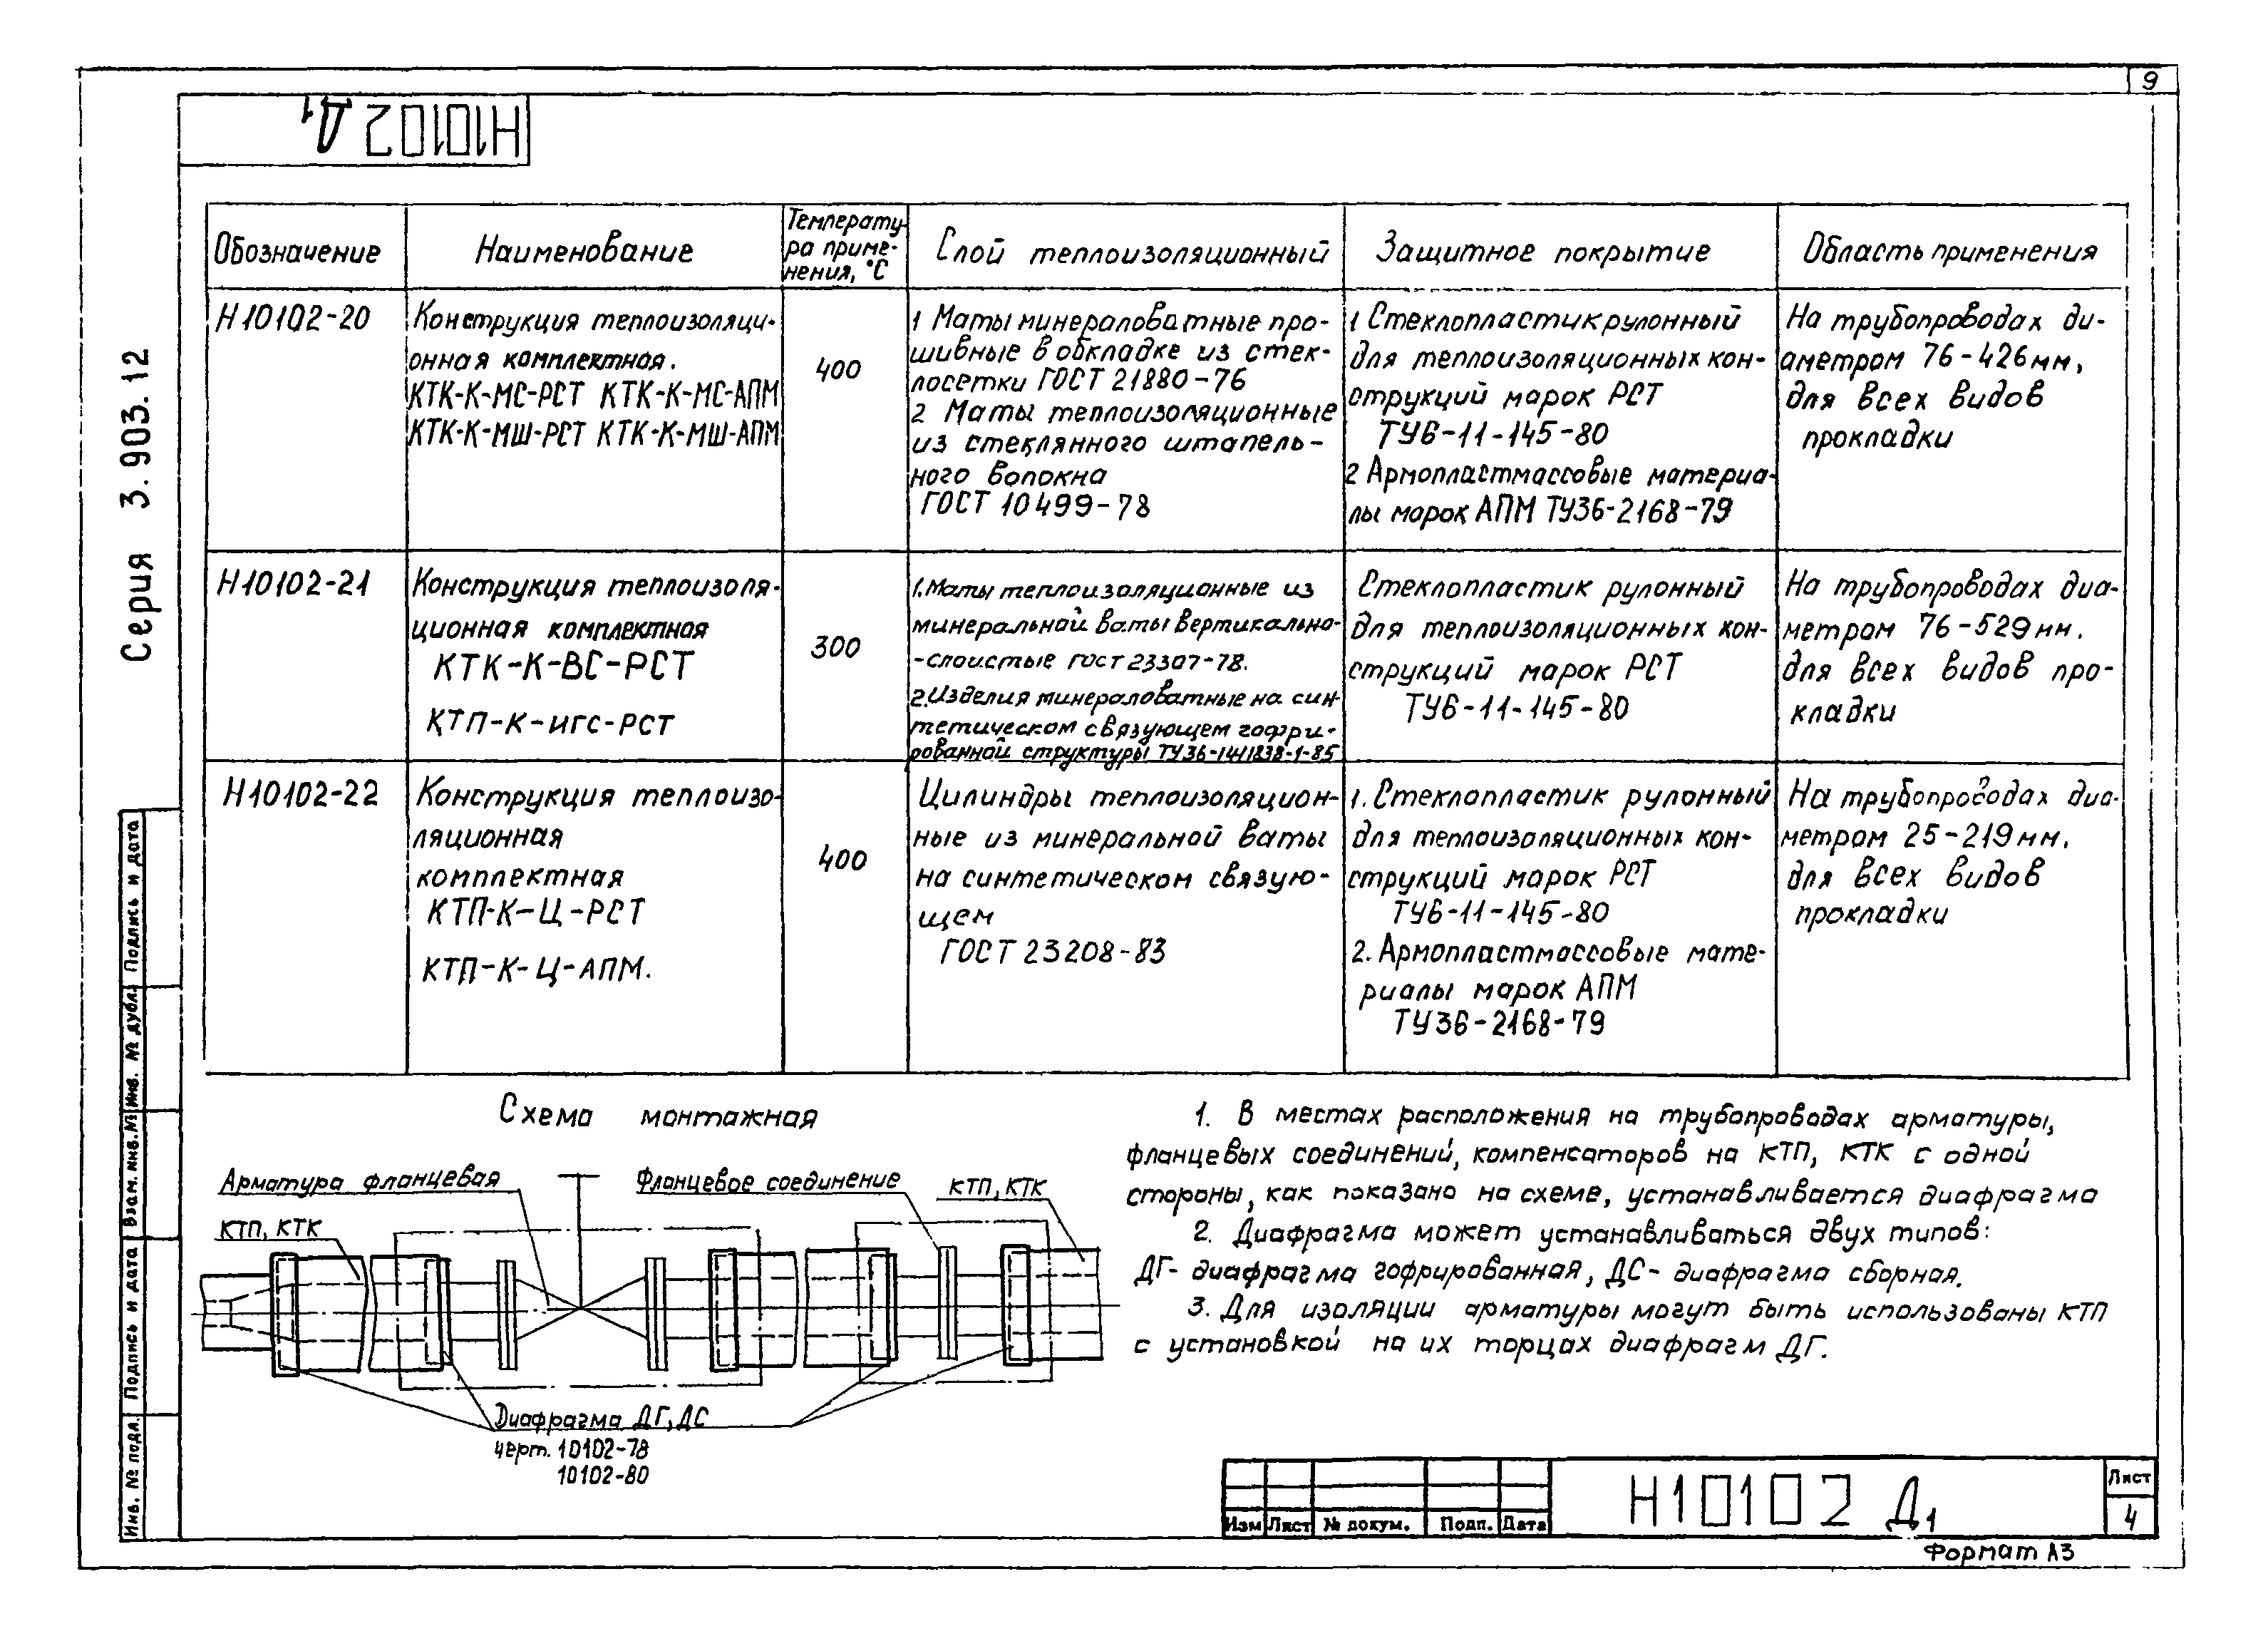 9
Н10102 Д1
Серия 3.903.12
Обозначение
Наименование
Температу-
ра приме-
нения, °С
Слой теплоизоляционный
Защитное покрытие
Область применения
Н10102-20
Конструкция теплоизоляци-
онная комплектная.
КТК-К-МС-РСТ КТК-К-МС-АПМ
КТК-К-МШ-РСТ КТК-К-МШ-АПМ
400
1 Маты минераловатные про-
шивные в обкладке из стек-
лосетки ГОСТ 21880-76
2 Маты теплоизоляционные
из стеклянного штапель-
ного волокна
ГОСТ 10499-78
1 Стеклопластик рулонный
для теплоизоляционных кон-
струкций марок РСТ
ТУ6-11-145-80
2 Армопластмассовые материа-
лы марок АПМ ТУ36-2168-79
На трубопроводах ди-
аметром 76-426мм,
для всех видов
прокладки
Н10102-21
Конструкция теплоизоля-
ционная комплектная
КТК-К-ВС-РСТ
КТП-К-ИГС-РСТ
300
1.Маты теплоизоляционные из
минеральной ваты вертикально-
-слоистые ГОСТ 23307-78.
2.Изделия минераловатные на син-
тетическом связующем гофри-
рованной структуры ТУ36-1411838-1-85
Стеклопластик рулонный
для теплоизоляционных кон-
струкций марок РСТ
ТУ6-11-145-80
На трубопроводах диа-
метром 76-529мм.
для всех видов про-
кладки
Н10102-22
Конструкция теплоизо-
ляционная
комплектная
КТП-К-Ц-РСТ
КТП-К-Ц-АПМ.
400
Цилиндры теплоизоляцион-
ные из минеральной ваты
на синтетическом связую-
щем
ГОСТ 23208-83
1. Стеклопластик рулонный
для теплоизоляционных кон-
струкций марок РСТ
ТУ6-11-145-80
2. Армопластмассовые мате-
риалы марок АПМ
ТУ36-2168-79
На трубопроводах диа-
метром 25-219мм.
для всех видов
прокладки
Схема монтажная
Арматура фланцевая
КТП, КТК
Фланцевое соединение
КТП, КТК
Диафрагма ДГ, ДС
черт. 10102-78
10102-80
1. В местах расположения на трубопроводах арматуры,
фланцевых соединений, компенсаторов на КТП, КТК с одной
стороны, как показано на схеме, устанавливается диафрагма
2. Диафрагма может устанавливаться двух типов:
ДГ- диафрагма гофрированная, ДС- диафрагма сборная.
3. Для изоляции арматуры могут быть использованы КТП
с установкой на их торцах диафрагм ДГ.
Инв. № подл.
Подпись и дата
Взам. инв. №
Инв. № дубл.
Подпись и дата
Изм
Лист
№ докум.
Подп.
Дата
Н10102 Д1
Лист
4
Формат А3